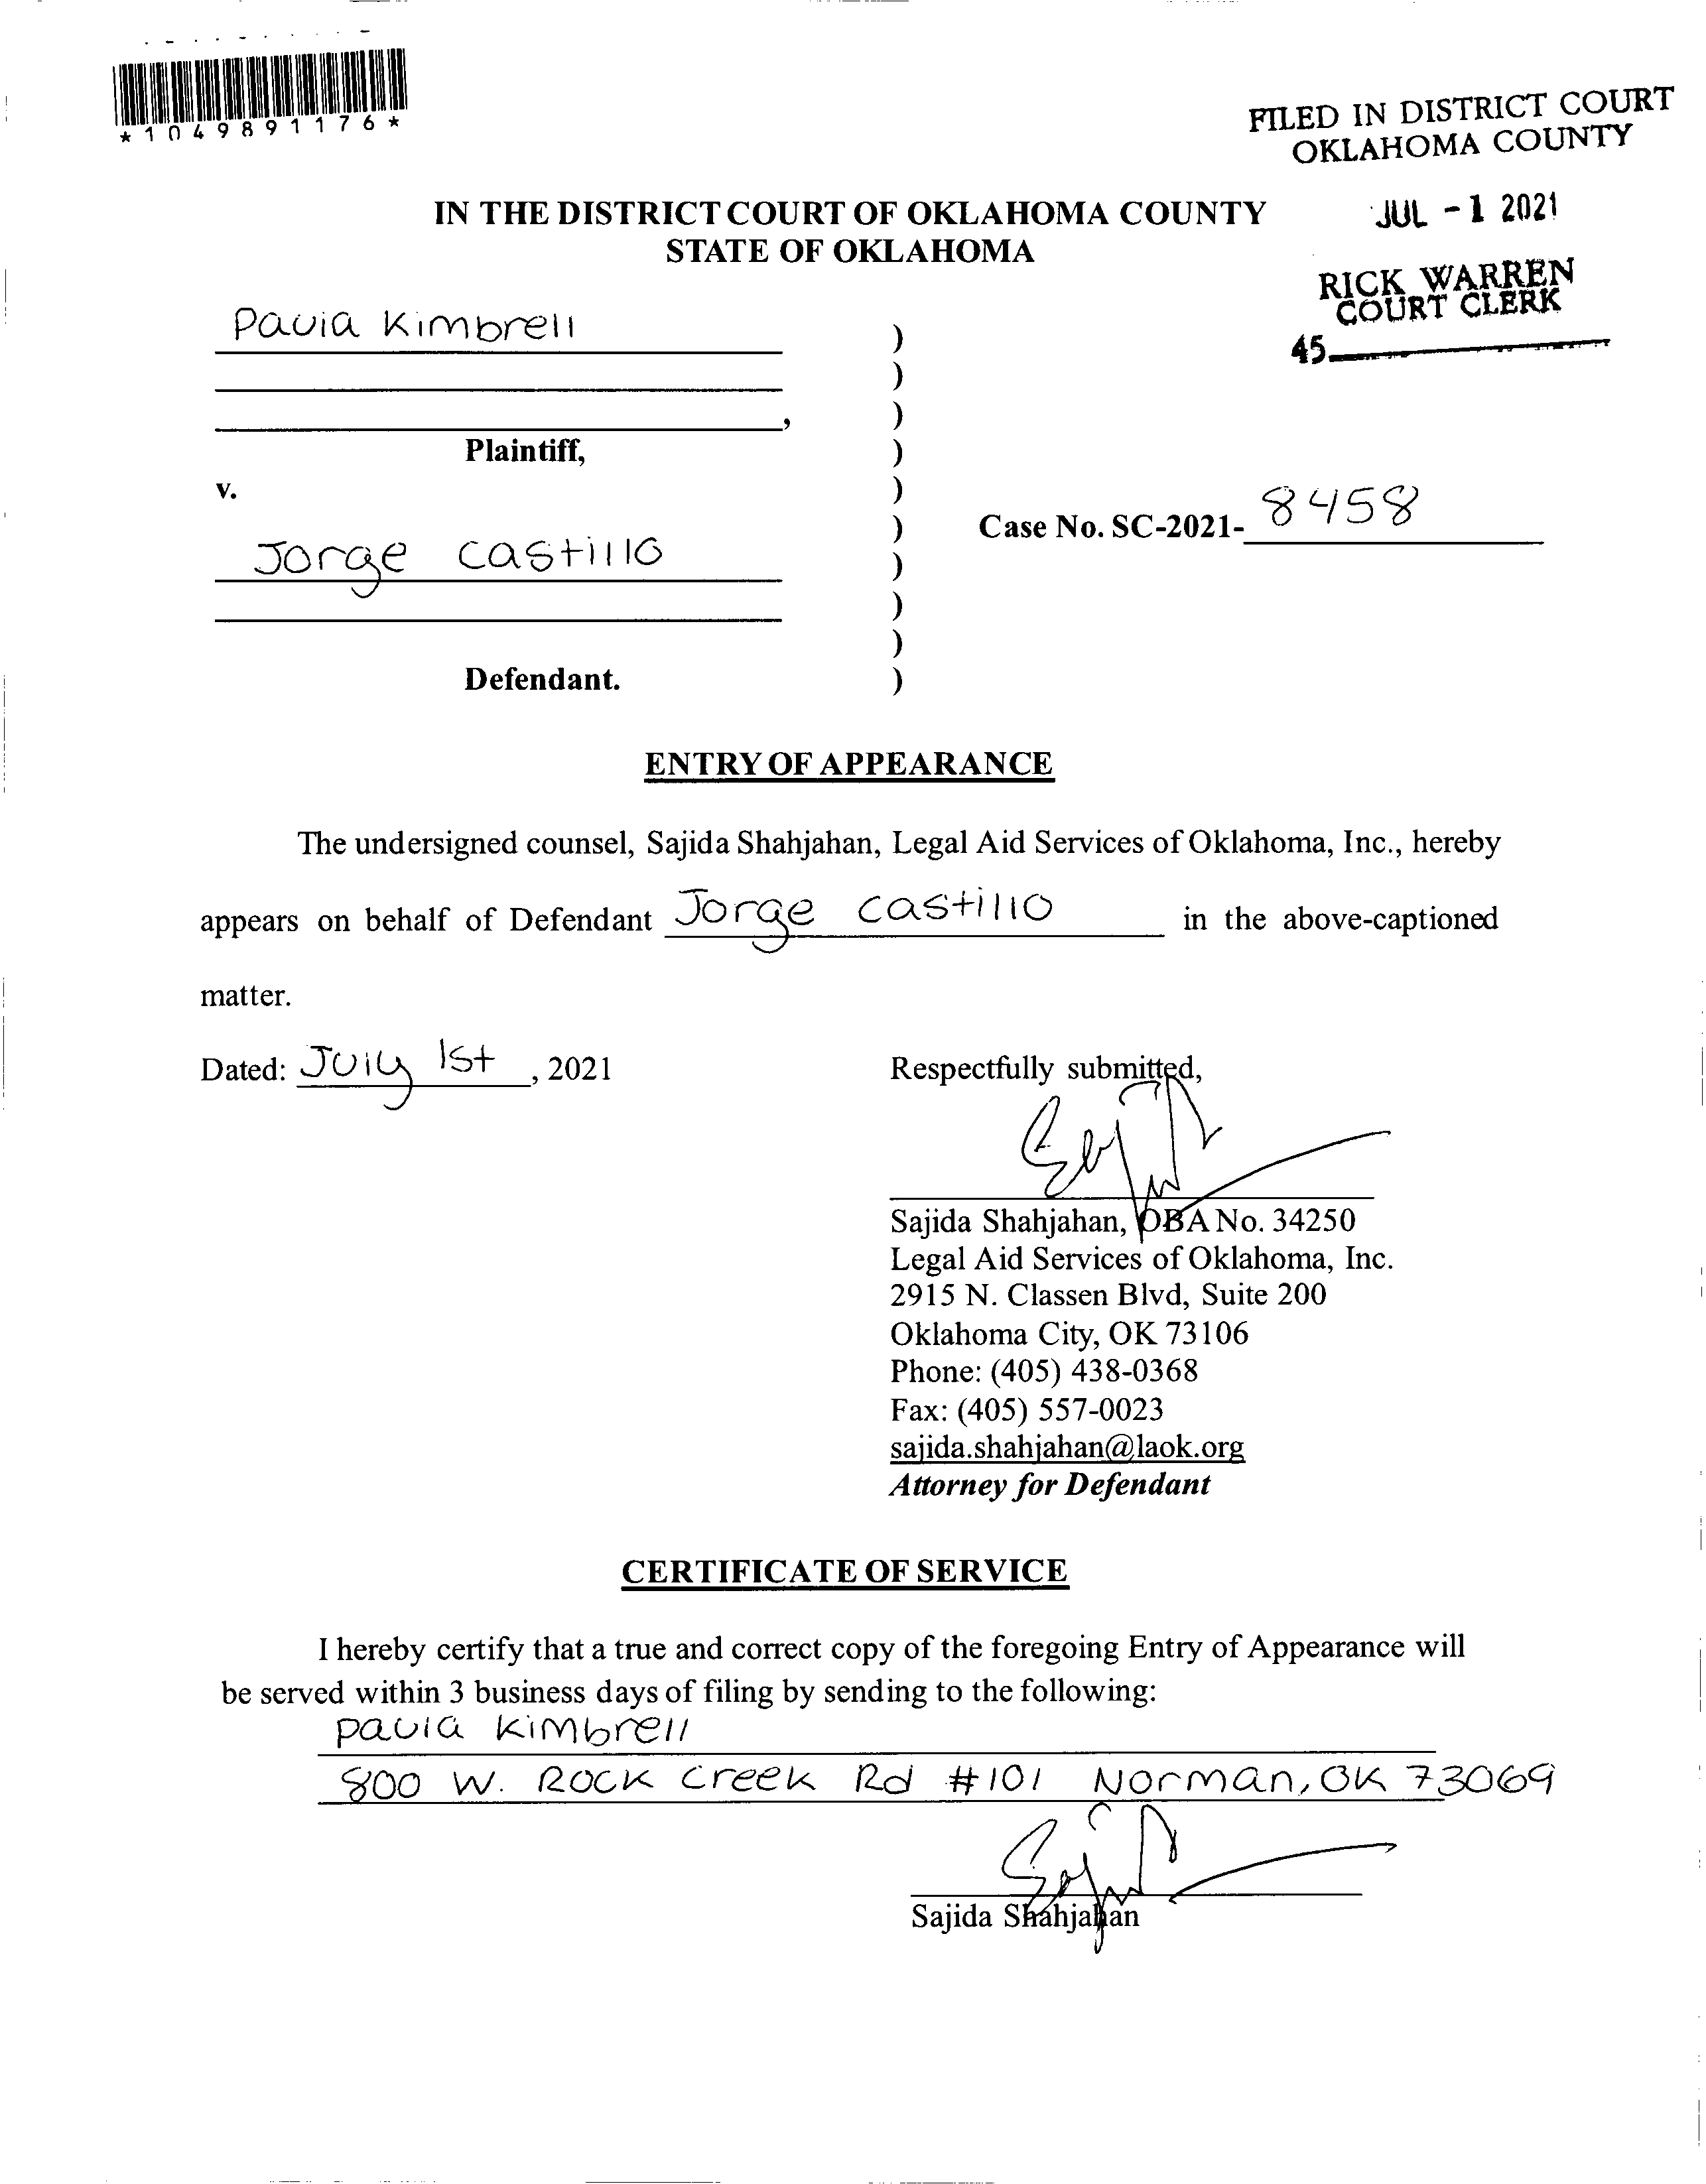 *1049891176*
FILED IN DISTRICT COURT
OKLAHOMA COUNTY
JUL - 1 2021
RICK WARREN
COURT CLERK
45
IN THE DISTRICT COURT OF OKLAHOMA COUNTY
STATE OF OKLAHOMA
Pavia Kimbrell )
)
, )
Plaintiff, )
v. )
) Case No. SC-2021- 8458
Jorge Castillo )
)
)
Defendant. )
ENTRY OF APPEARANCE
The undersigned counsel, Sajida Shahjahan, Legal Aid Services of Oklahoma, Inc., hereby
appears on behalf of Defendant Jorge Castillo in the above-captioned
matter.
Dated: July 1st, 2021
Respectfully submitted,
Sajida Shahjahan, OBA No. 34250
Legal Aid Services of Oklahoma, Inc.
2915 N. Classen Blvd, Suite 200
Oklahoma City, OK 73106
Phone: (405) 438-0368
Fax: (405) 557-0023
sajida.shahjahan@laok.org
Attorney for Defendant
CERTIFICATE OF SERVICE
I hereby certify that a true and correct copy of the foregoing Entry of Appearance will
be served within 3 business days of filing by sending to the following:
Pavia Kimbrell
800 W. Rock Creek Rd #101 Norman, OK 73069
Sajida Shahjahan